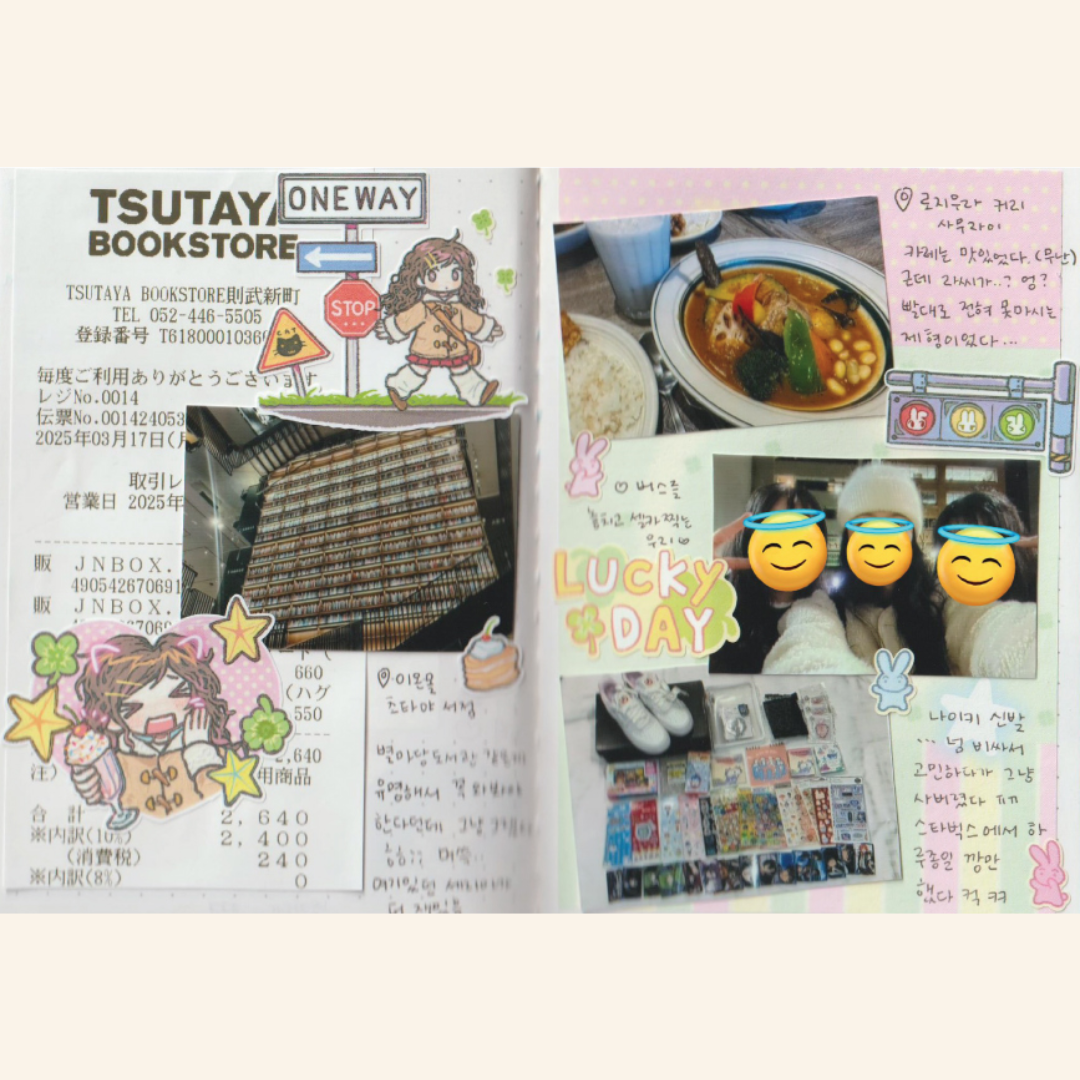 TSUTAYA
BOOKSTORE
TSUTAYA BOOKSTORE則武新町
TEL 052-446-5505
登録番号 T6180001036
毎度ご利用ありがとうございます
レジNo.0014
伝票No.001424053
2025年03月17日(
取引レ
営業日 2025年
販 JNBOX.
490542670691
販 JNBOX.
660
(ハグ
550
2,640
注)
用商品
合 計 2,640
※内訳(10%) 2,400
(消費税) 240
※内訳(8%) 0
ONE WAY
STOP
CAT
이온몰
츠타야 서점
별마당도서관
유명해서 꼭 와봐야
한다던데 그냥
여기있던
더
로지우라 커리
사무라이
카레는 맛있었다.(무난)
근데 라씨가..? 엉?
빨대로 전혀 못마시는
제형이었다...
버스를
놓치고 셀카찍는
우리
LUCKY
DAY
나이키 신발
... 넘 비싸서
고민하다가 그냥
사버렸다 ㅠㅠ
스타벅스에서 하
루종일 깡만
했다 컥 ㅋㅋ